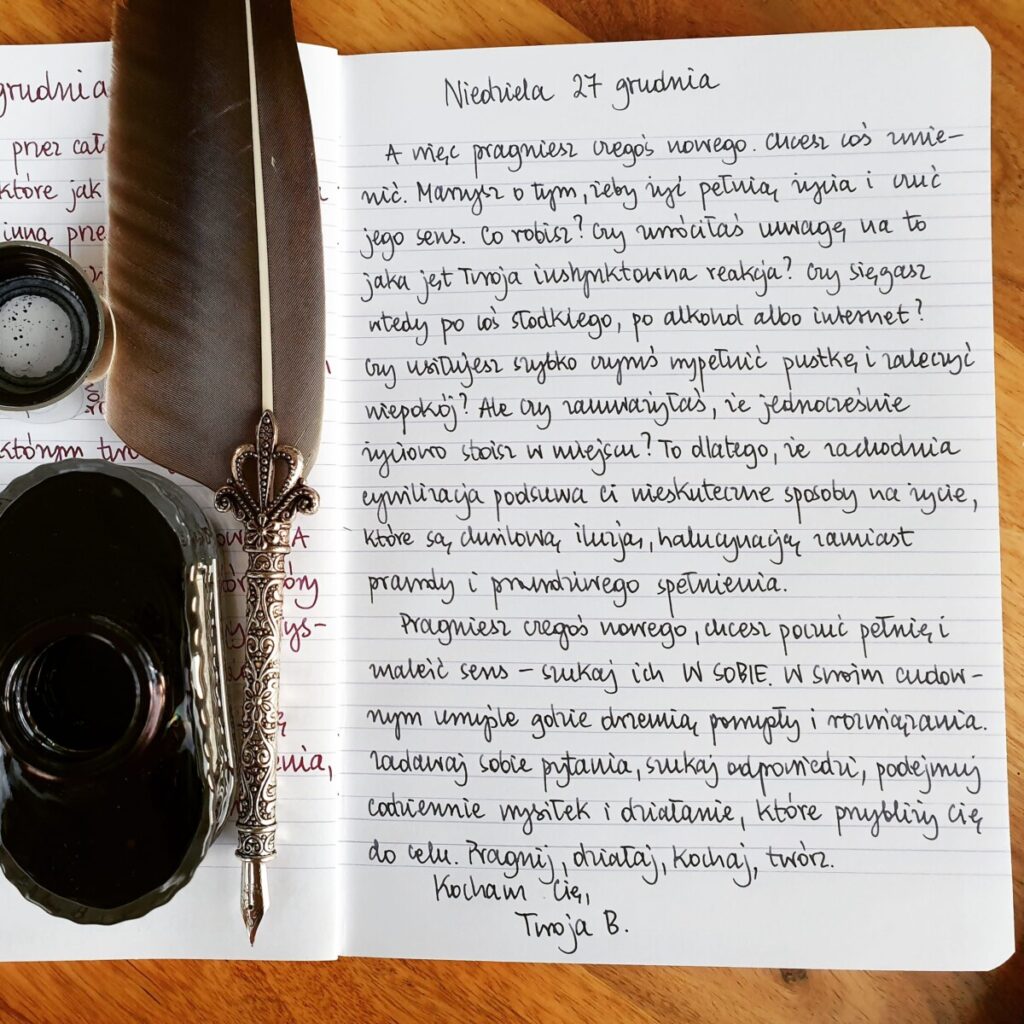 grudnia
przez cał
które jak
inną prze
którym tw
A
óry
ys-
enia,
Niedziela 27 grudnia
A więc pragniesz czegoś nowego. Chcesz coś zmie-
nić. Marzysz o tym, żeby żyć pełnią życia i czuć
jego sens. Co robisz? Czy zwróciłaś uwagę na to
jaka jest Twoja instynktowna reakcja? Czy sięgasz
wtedy po coś słodkiego, po alkohol albo internet?
Czy usiłujesz szybko czymś wypełnić pustkę i zaleczyć
niepokój? Ale czy zauważyłaś, że jednocześnie
życiowo stoisz w miejscu? To dlatego, że zachodnia
cywilizacja podsuwa ci nieskuteczne sposoby na życie,
które są chwilową iluzją, halucynacją zamiast
prawdy i prawdziwego spełnienia.
Pragniesz czegoś nowego, chcesz poczuć pełnię i
znaleźć sens – szukaj ich W SOBIE. W swoim cudow-
nym umyśle gdzie drzemią pomysły i rozwiązania.
Zadawaj sobie pytania, szukaj odpowiedzi, podejmuj
codziennie wysiłek i działanie, które przybliży Cię
do celu. Pragnij, działaj, kochaj, twórz.
Kocham Cię,
Twoja B.